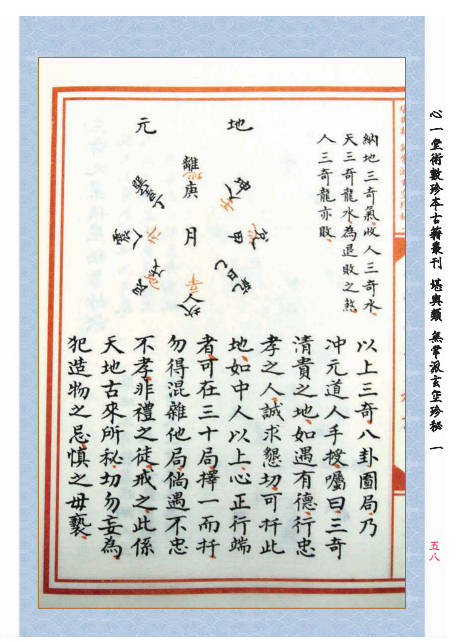 心一堂術數珍本古籍叢刊 堪輿類 無常派玄空珍秘 一
五八
納地三奇氣收人三奇水
天三奇龍水為退敗之煞
人三奇龍亦敗
地 元
離
庚
坤
人
兌
甲
乾
己
坎
人
艮
震
人
巽
月
以上三奇八卦圖局乃
冲元道人手授囑曰三奇
清貴之地如遇有德行忠
孝之人誠求懇切可扦此
地如中人以上心正行端
者可在三十局擇一而扦
勿得混雜他局倘遇不忠
不孝非禮之徒戒之此係
天地古來所秘切勿妄為
犯造物之忌慎之毋褻